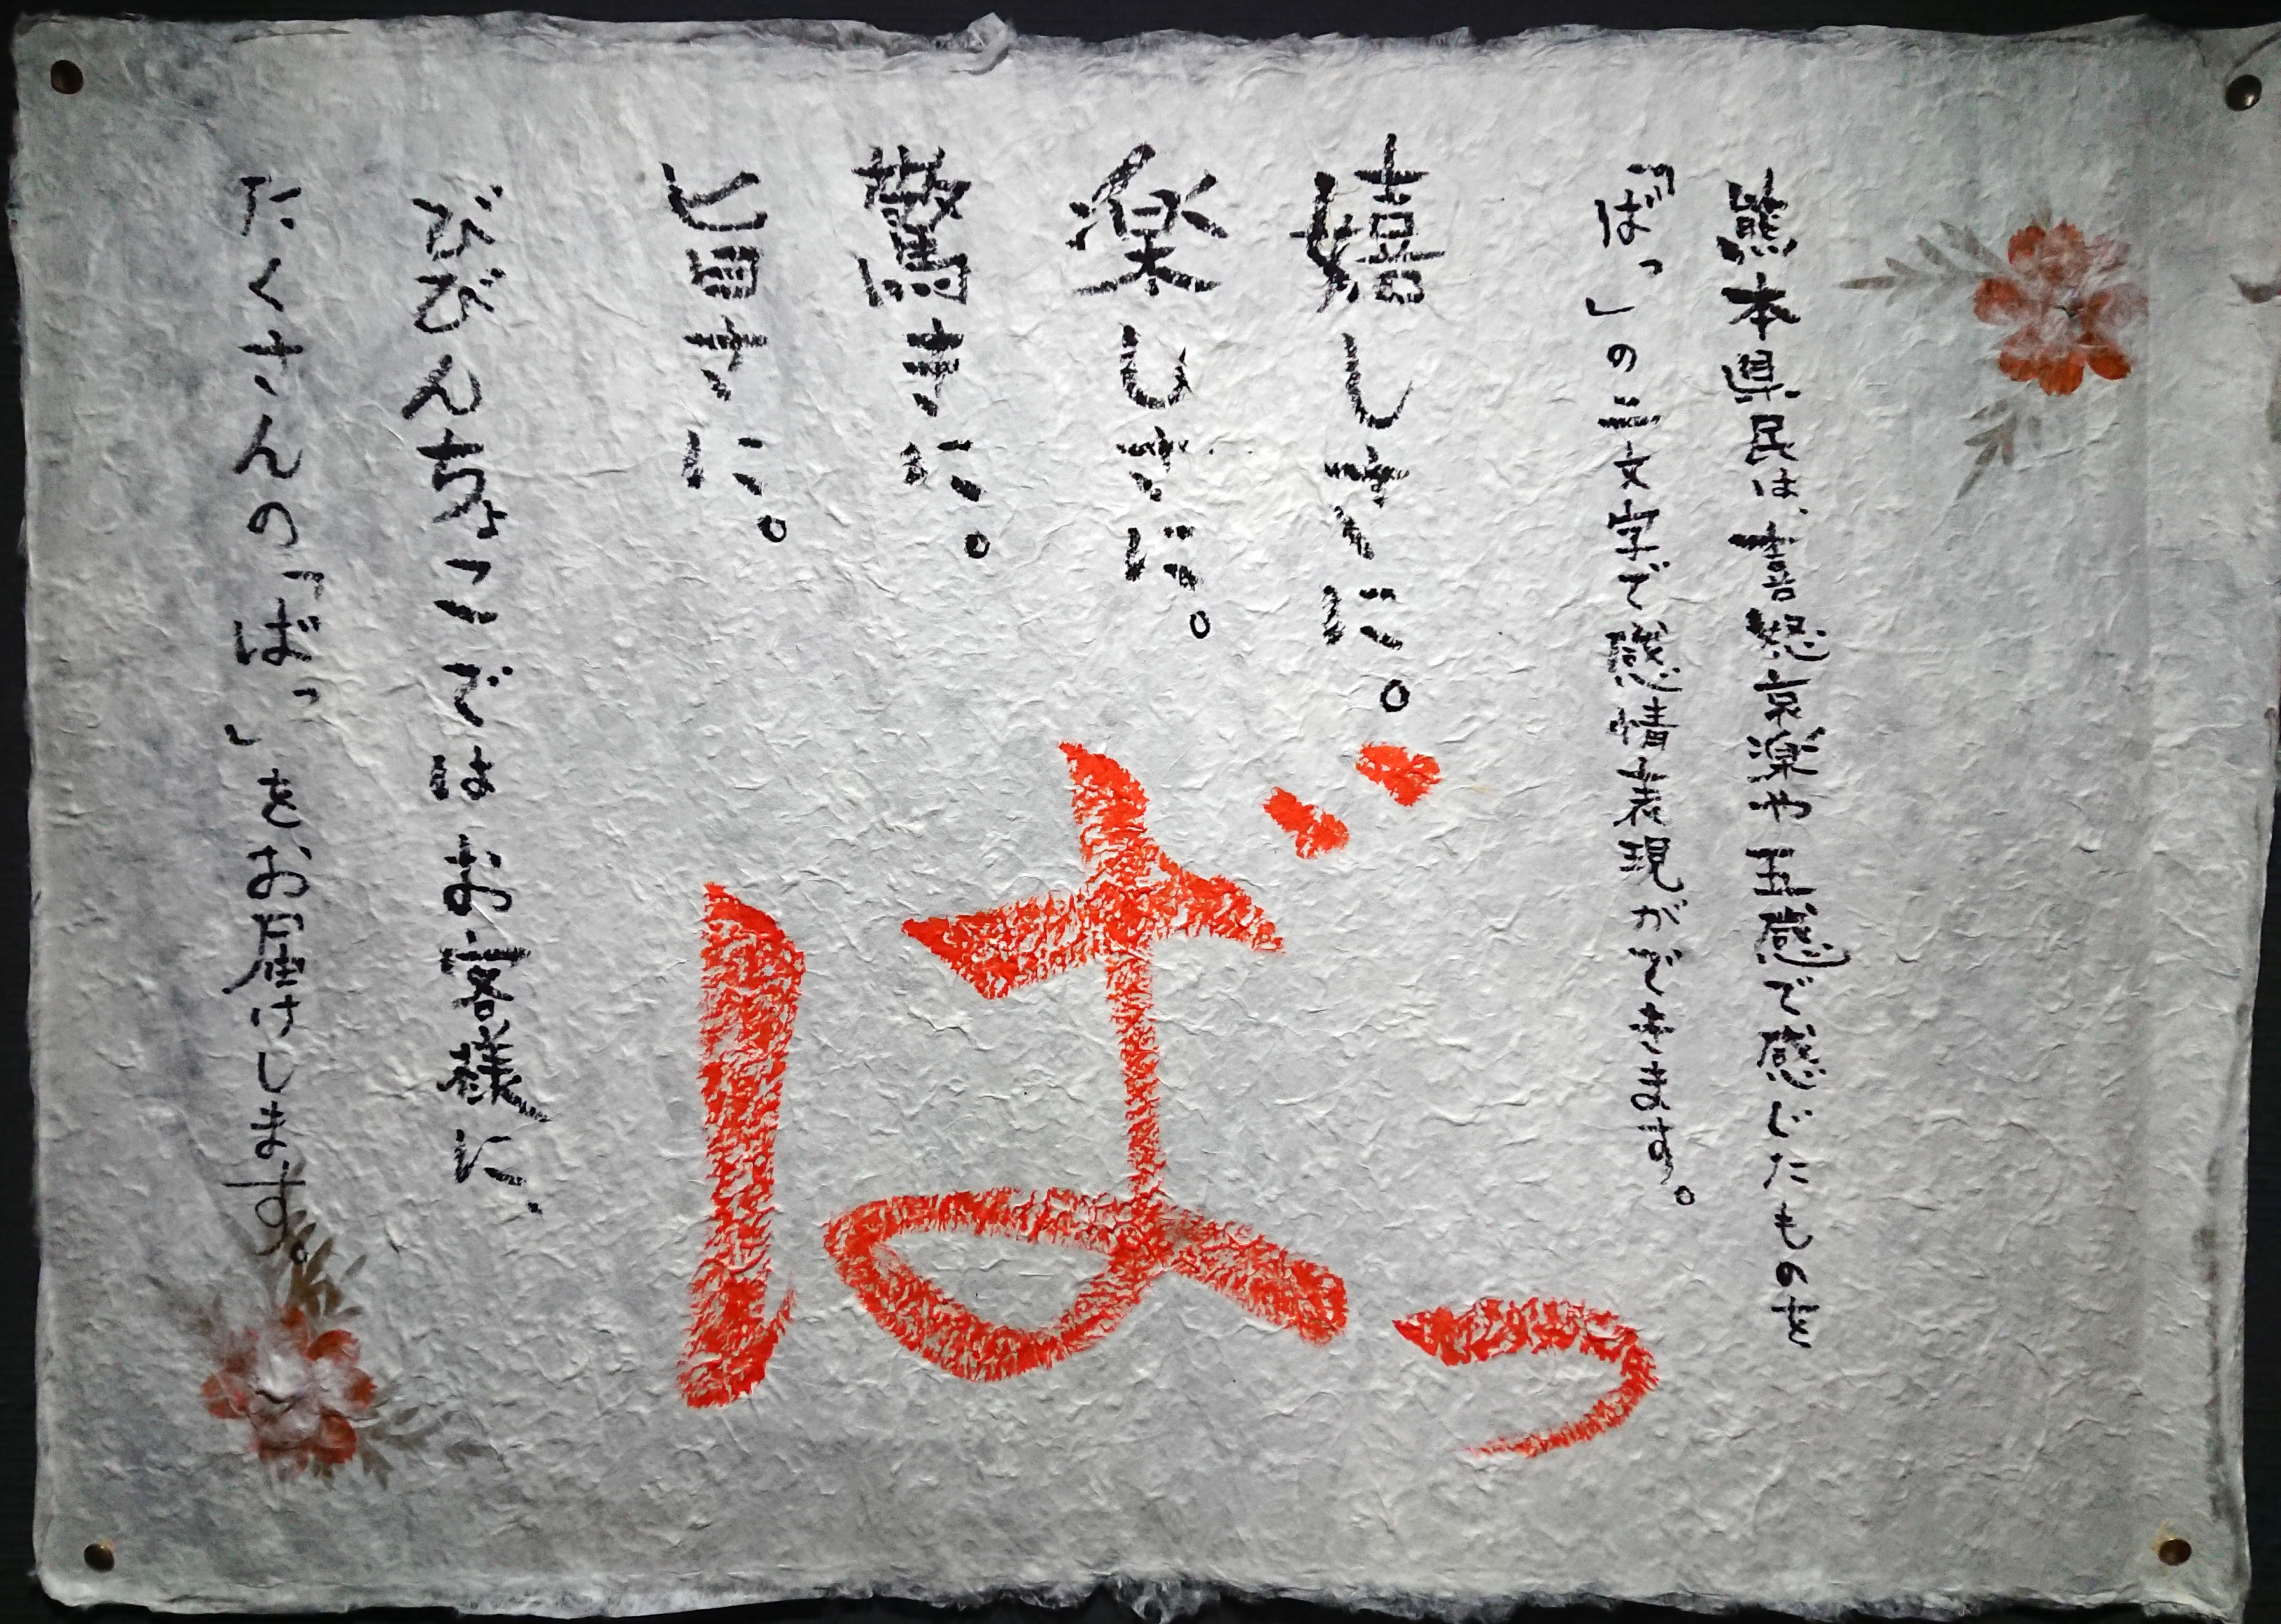 熊本県民は、喜怒哀楽や五感で感じたものを
「ばっ」の三文字で感情表現ができます。
嬉しさに。
楽しさに。
驚きに。
旨さに。
ばっ
びびんちょこではお客様に、
たくさんの「ばっ」をお届けします。